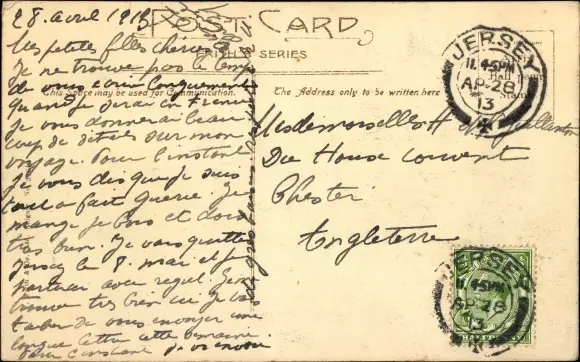 28. avril 1913
POST CARD
BRITISH SERIES
This Space may be used for Communication.
The Address only to be written here
Half penny
Stamp
JERSEY
11.45PM
AP 28
13
Mes petites filles chéries
Je ne trouve pas le temps
de vous écrire longuement
quand je serai en France
je vous donnerai beau
coup de détails sur mon
voyage. Pour l'instant
je vous dis que je suis
tout à fait guérie. Je
mange je bois et dors
très bien. Je vais quitter
Jersey le 8. mai et je
partirai avec regret. Je me
trouve très bien ici je vais
tâcher de vous envoyer une
longue lettre cette semaine.
je vous envoie
Mesdemoiselles H
Dee House convent
Chester
Angleterre
JERSEY
11.45PM
AP 28
13